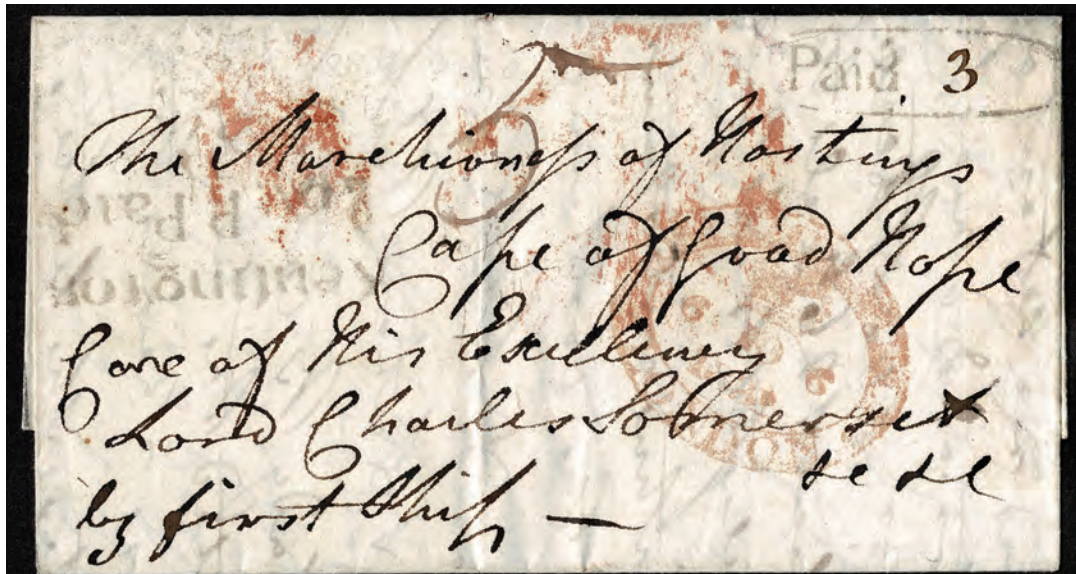 Paid 3
5
The Marchioness of Hastings
Cape of Good Hope
Care of His Excellency
Lord Charles Somerset
&c &c
by first Ship —